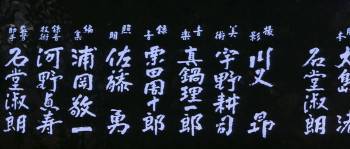 石堂淑朗
撮影 川又昻
美術 宇野耕司
音楽 真鍋理一郎
録音 栗田周十郎
照明 佐藤勇
編集 浦岡敬一
河野貞寿
石堂淑朗